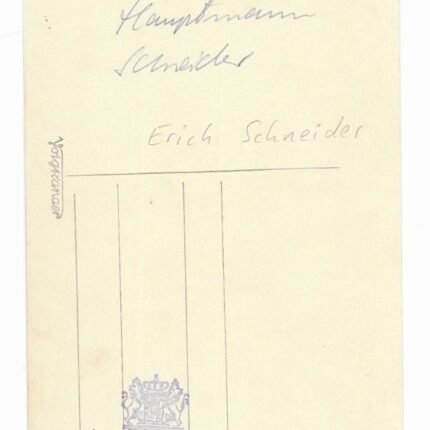 Hauptmann
Schneider
Erich Schneider